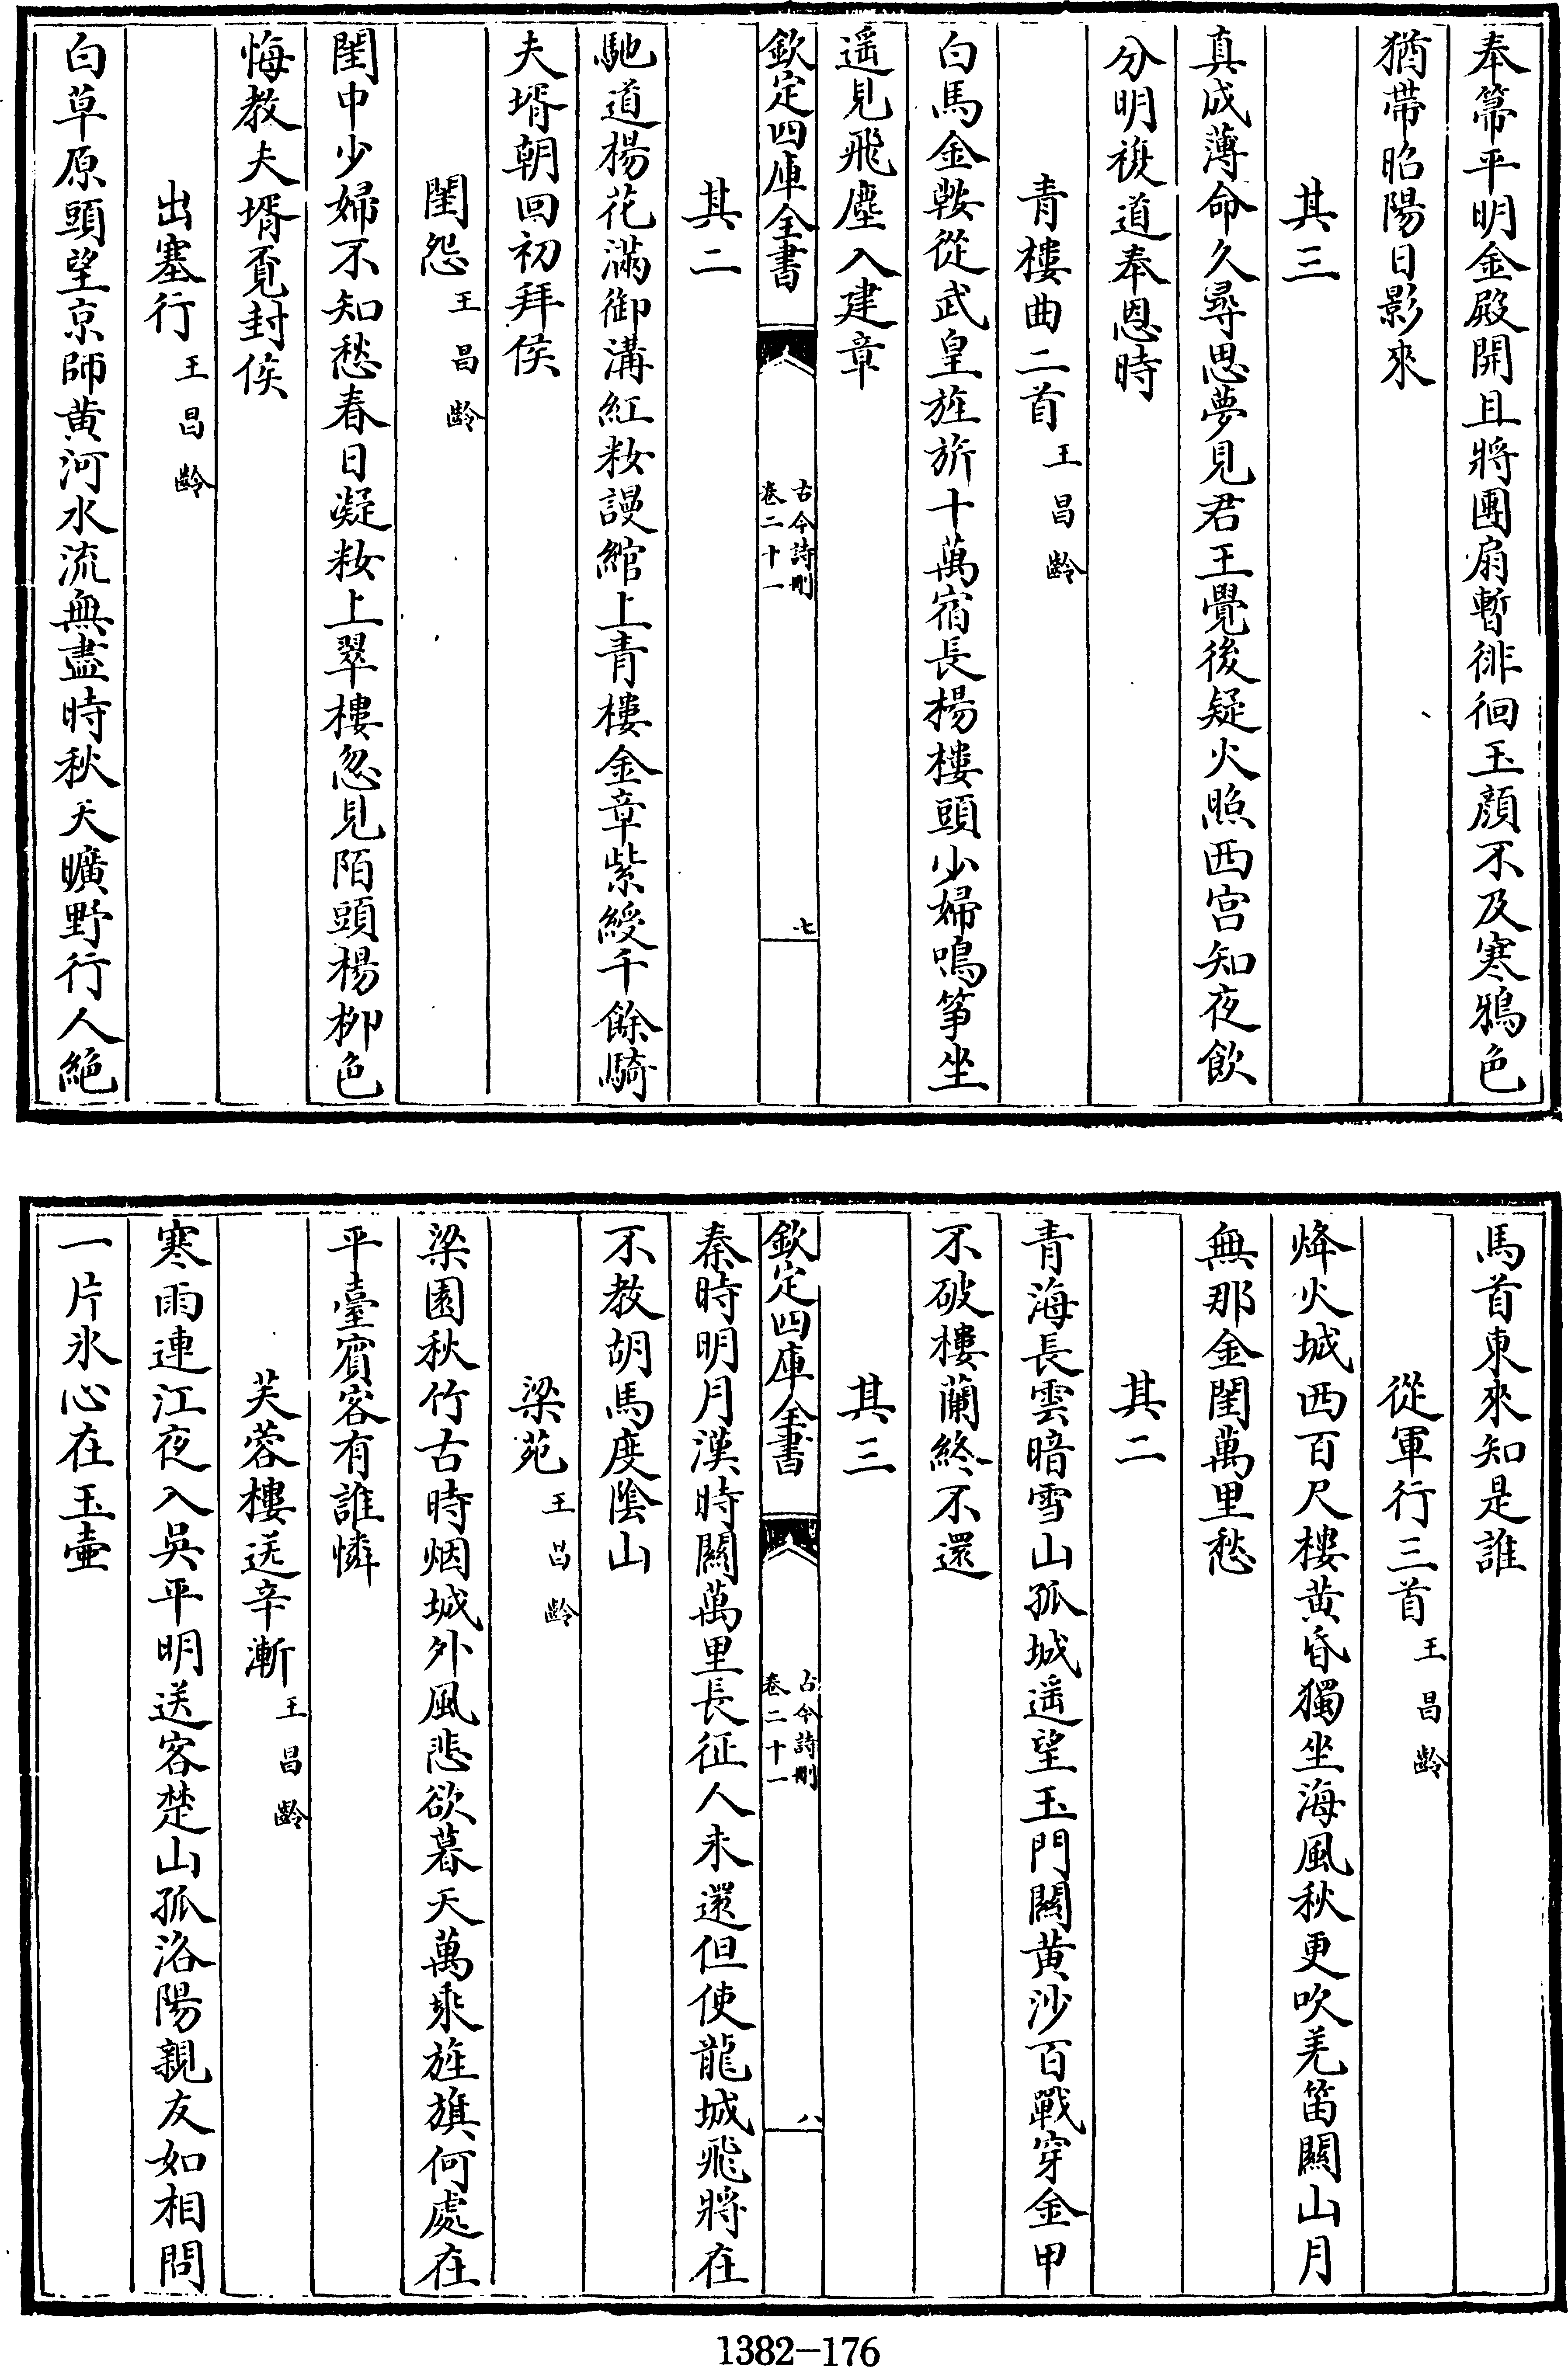 奉帚平明金殿開且將團扇暫徘徊玉顔不及寒鴉色
猶帶昭陽日影來
其三
真成薄命久尋思夢見君王覺後疑火照西宫知夜飲
分明複道奉恩時
青樓曲二首王昌齡
白馬金鞍從武皇旌旂十萬宿長楊樓頭少婦鳴筝坐
遥見飛塵入建章
欽定四庫全書
古今詩刪
卷二十一
七
其二
馳道楊花滿御溝紅粧謾綰上青樓金章紫綬千餘騎
夫壻朝回初拜侯
閨怨王昌齡
閨中少婦不知愁春日凝粧上翠樓忽見陌頭楊柳色
悔教夫壻覓封侯
出塞行王昌齡
白草原頭望京師黄河水流無盡時秋天曠野行人絶
馬首東來知是誰
從軍行三首王昌齡
烽火城西百尺樓黄昏獨坐海風秋更吹羌笛關山月
無那金閨萬里愁
其二
青海長雲暗雪山孤城遥望玉門關黄沙百戰穿金甲
不破樓蘭終不還
其三
欽定四庫全書
古今詩刪
卷二十一
八
秦時明月漢時關萬里長征人未還但使龍城飛將在
不教胡馬度陰山
梁苑王昌齡
梁園秋竹古時烟城外風悲欲暮天萬乘旌旗何處在
平臺賓客有誰憐
芙蓉樓送辛漸王昌齡
寒雨連江夜入吳平明送客楚山孤洛陽親友如相問
一片氷心在玉壷
1382-176